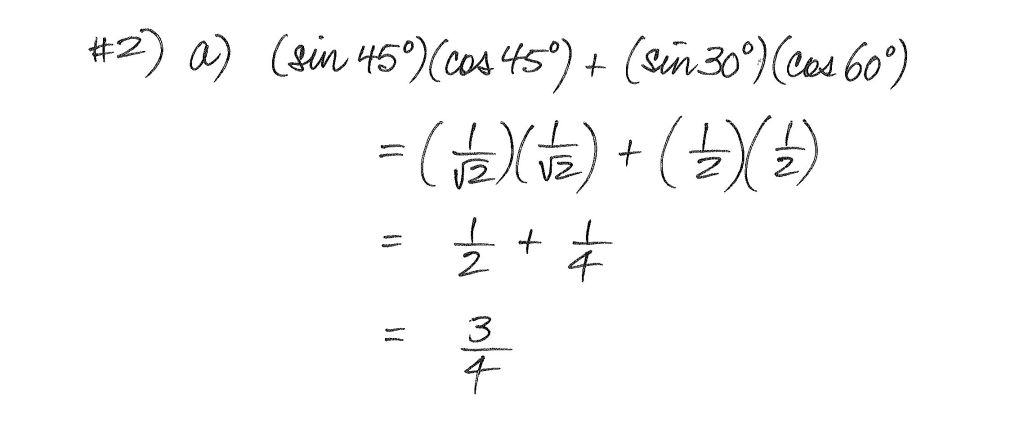 #2) a) (sin 45°)(cos 45°) + (sin 30°)(cos 60°)
= (1/√2)(1/√2) + (1/2)(1/2)
= 1/2 + 1/4
= 3/4